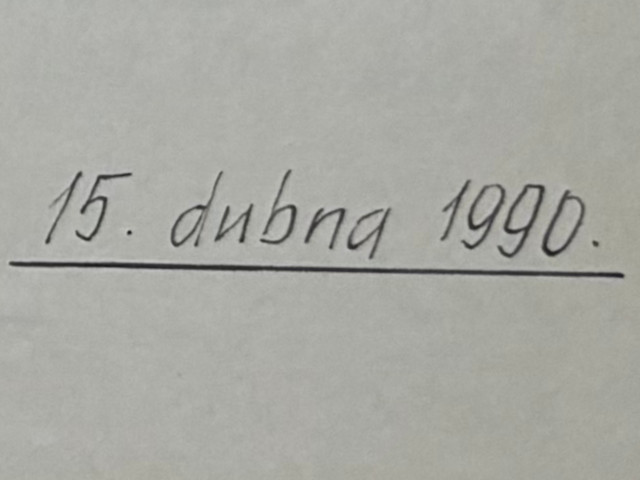 15. dubna 1990.